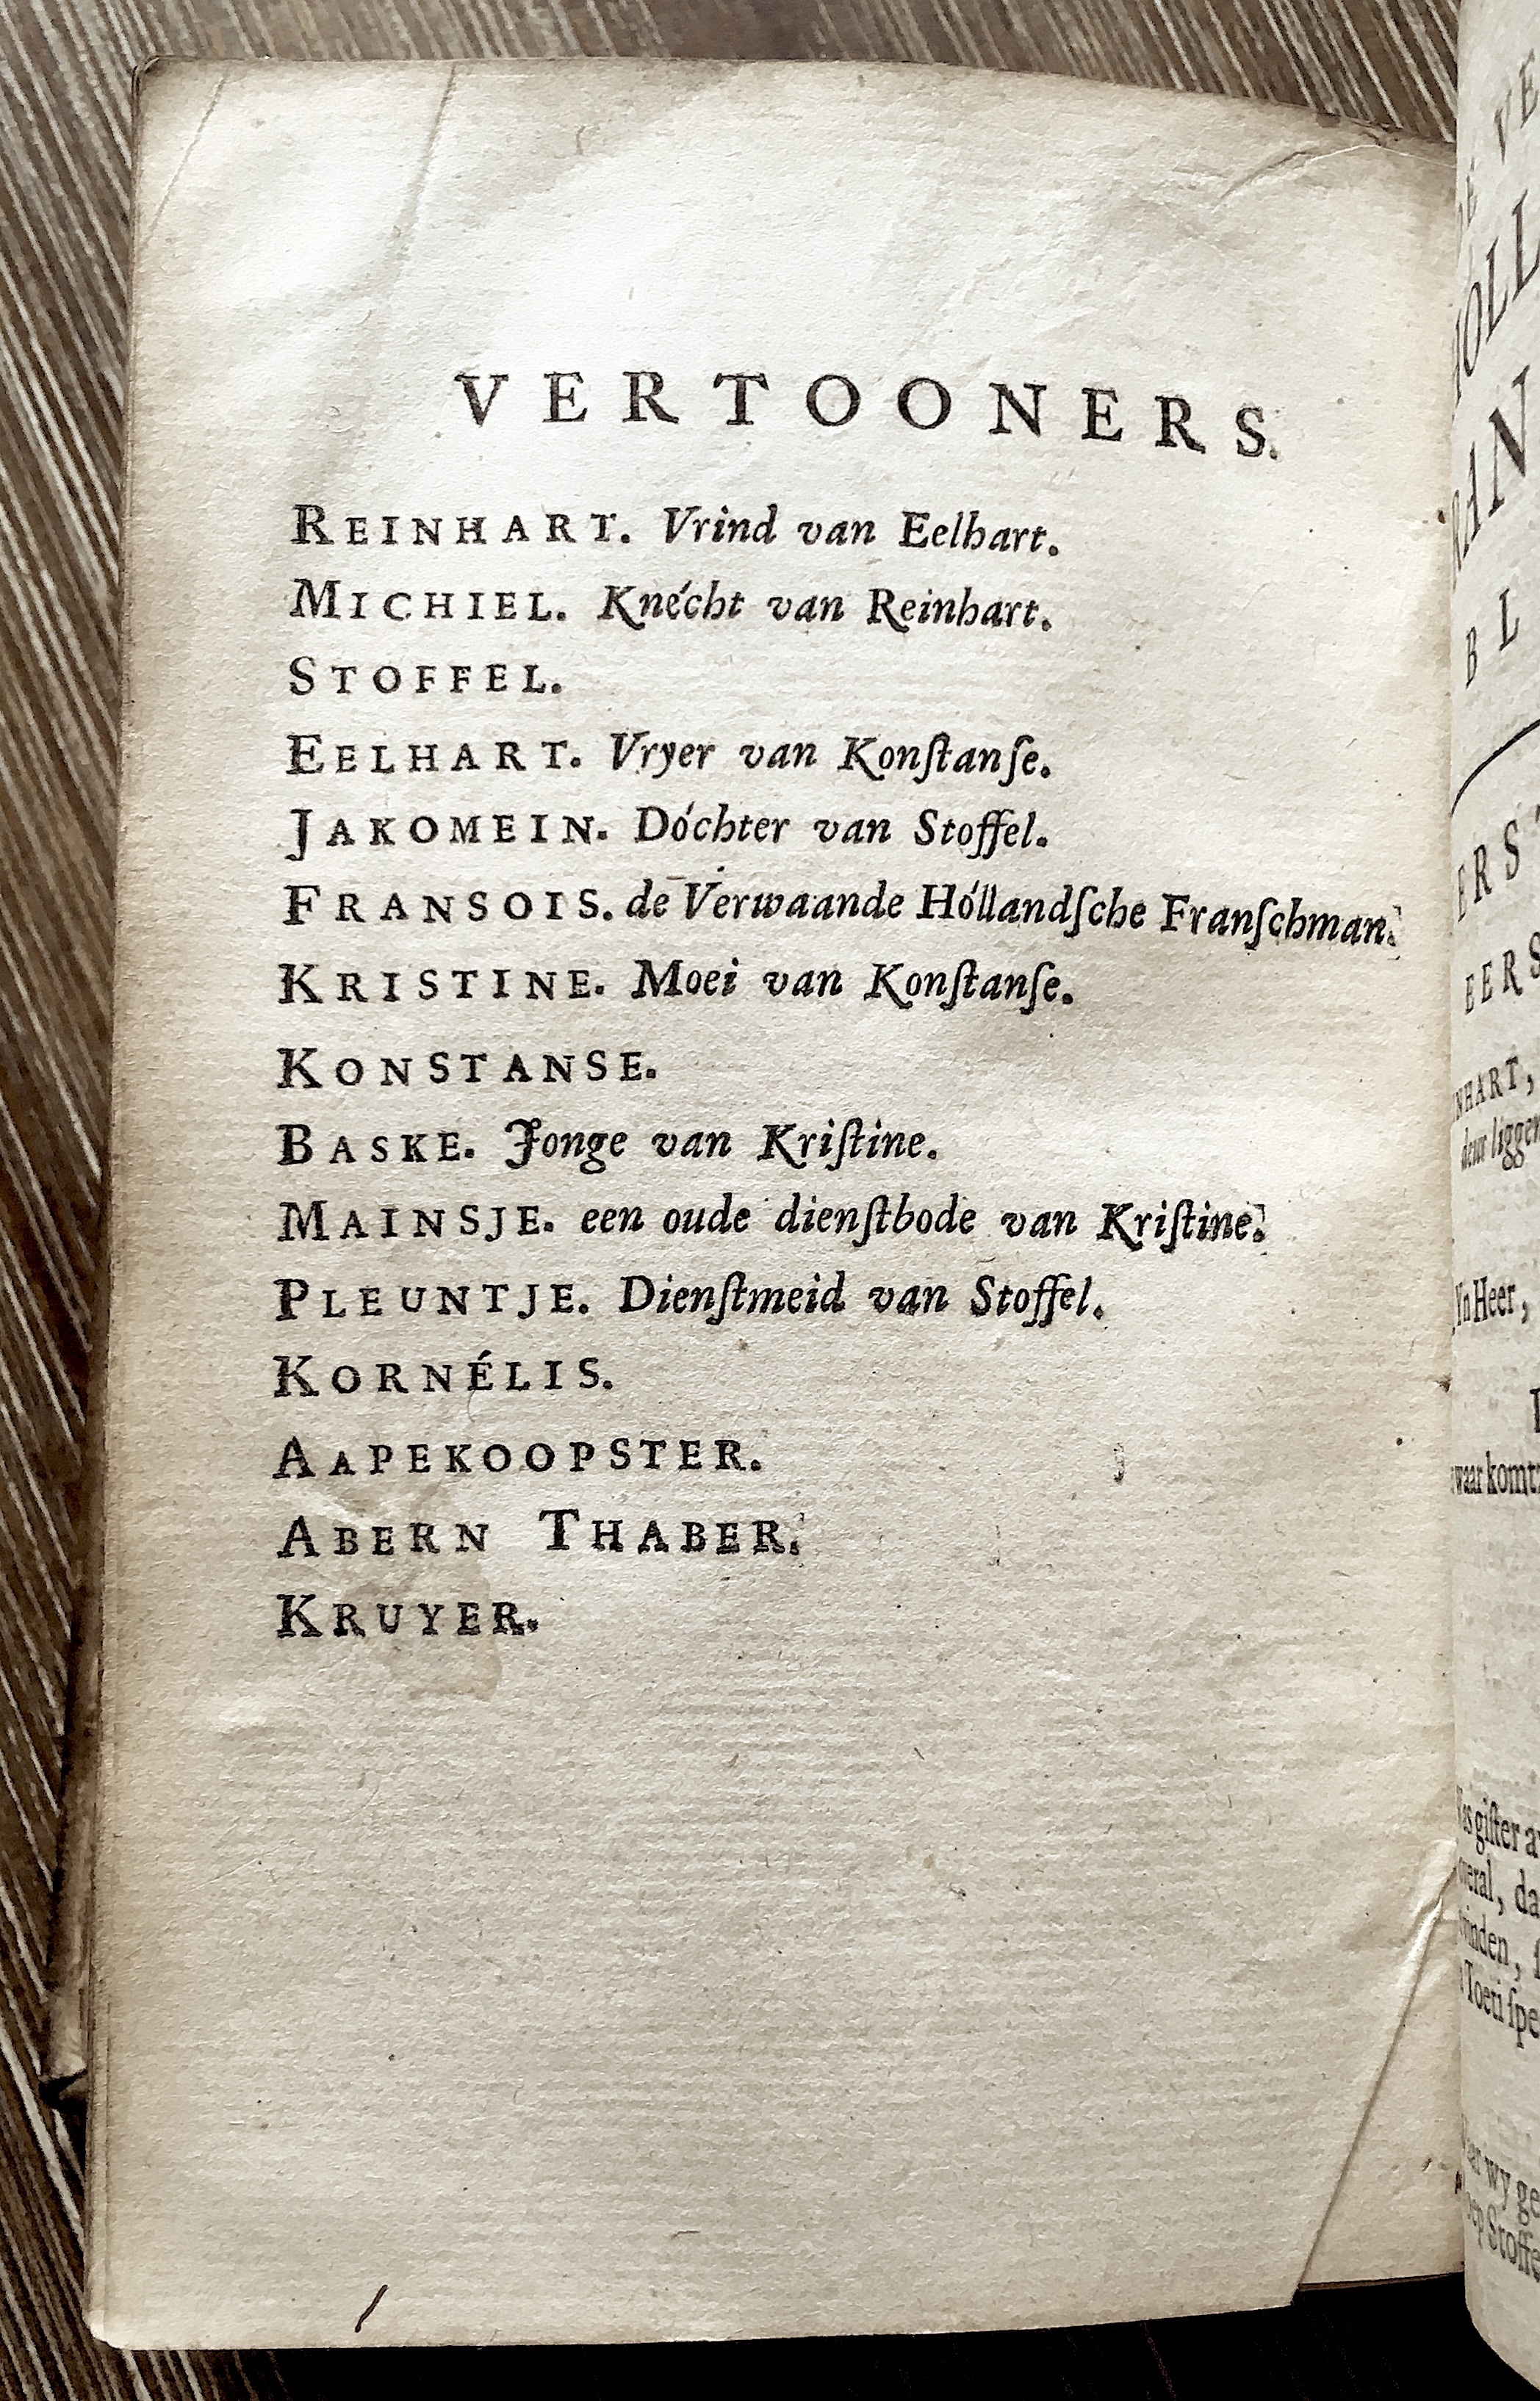 VERTOONERS.
REINHART. Vrind van Eelhart.
MICHIEL. Knécht van Reinhart.
STOFFEL.
EELHART. Vryer van Konſtanſe.
JAKOMEIN. Dóchter van Stoffel.
FRANSOIS. de Verwaande Hóllandſche Franſchman.
KRISTINE. Moei van Konſtanſe.
KONSTANSE.
BASKE. Jonge van Kriſtine.
MAINSJE. een oude dienſtbode van Kriſtine.
PLEUNTJE. Dienſtmeid van Stoffel.
KORNÉLIS.
AAPEKOOPSTER.
ABERN THABER.
KRUYER.
VE
B L
EERS
Heer,
waar komt
giſter
da
wy